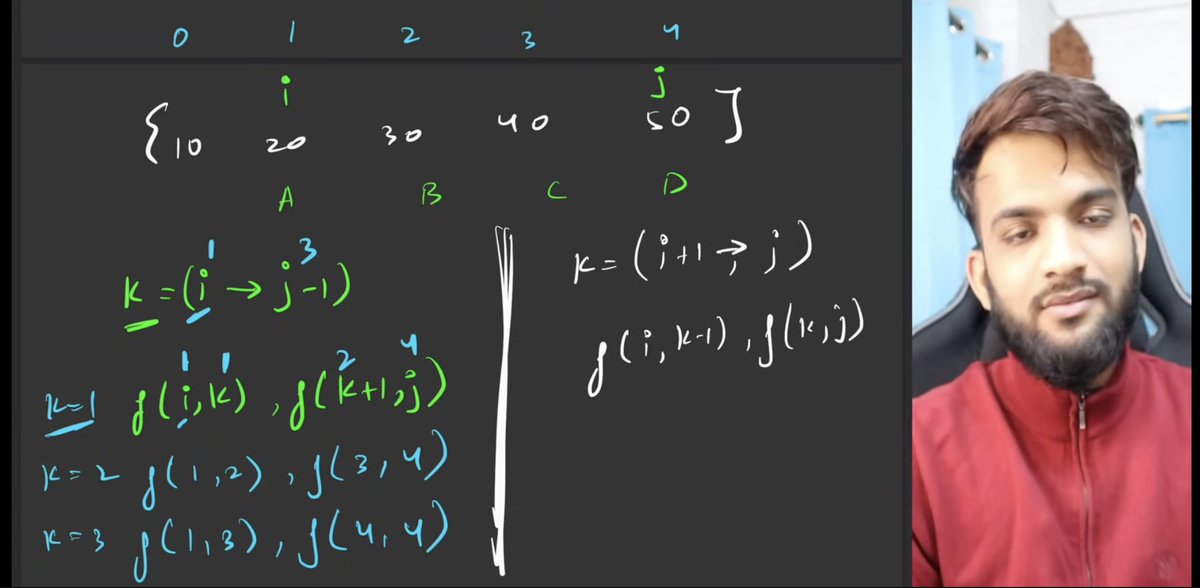 0 1 2 3 4
i j
{10 20 30 40 50]
A B C D
1 3
k = (i → j-1)
1 1 2 4
k=1 f(i,k) , f(k+1,j)
k=2 f(1,2) , f(3,4)
k=3 f(1,3) , f(4,4)
k = (i+1 → j)
f(i,k-1) , f(k,j)